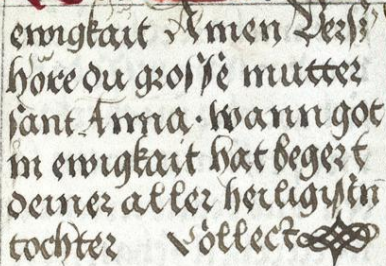 ewigkait Amen Versi
höre du grosse mutter
sant Anna · wann got
in ewigkait hat begert
deiner aller heiligisten
tochter Collect